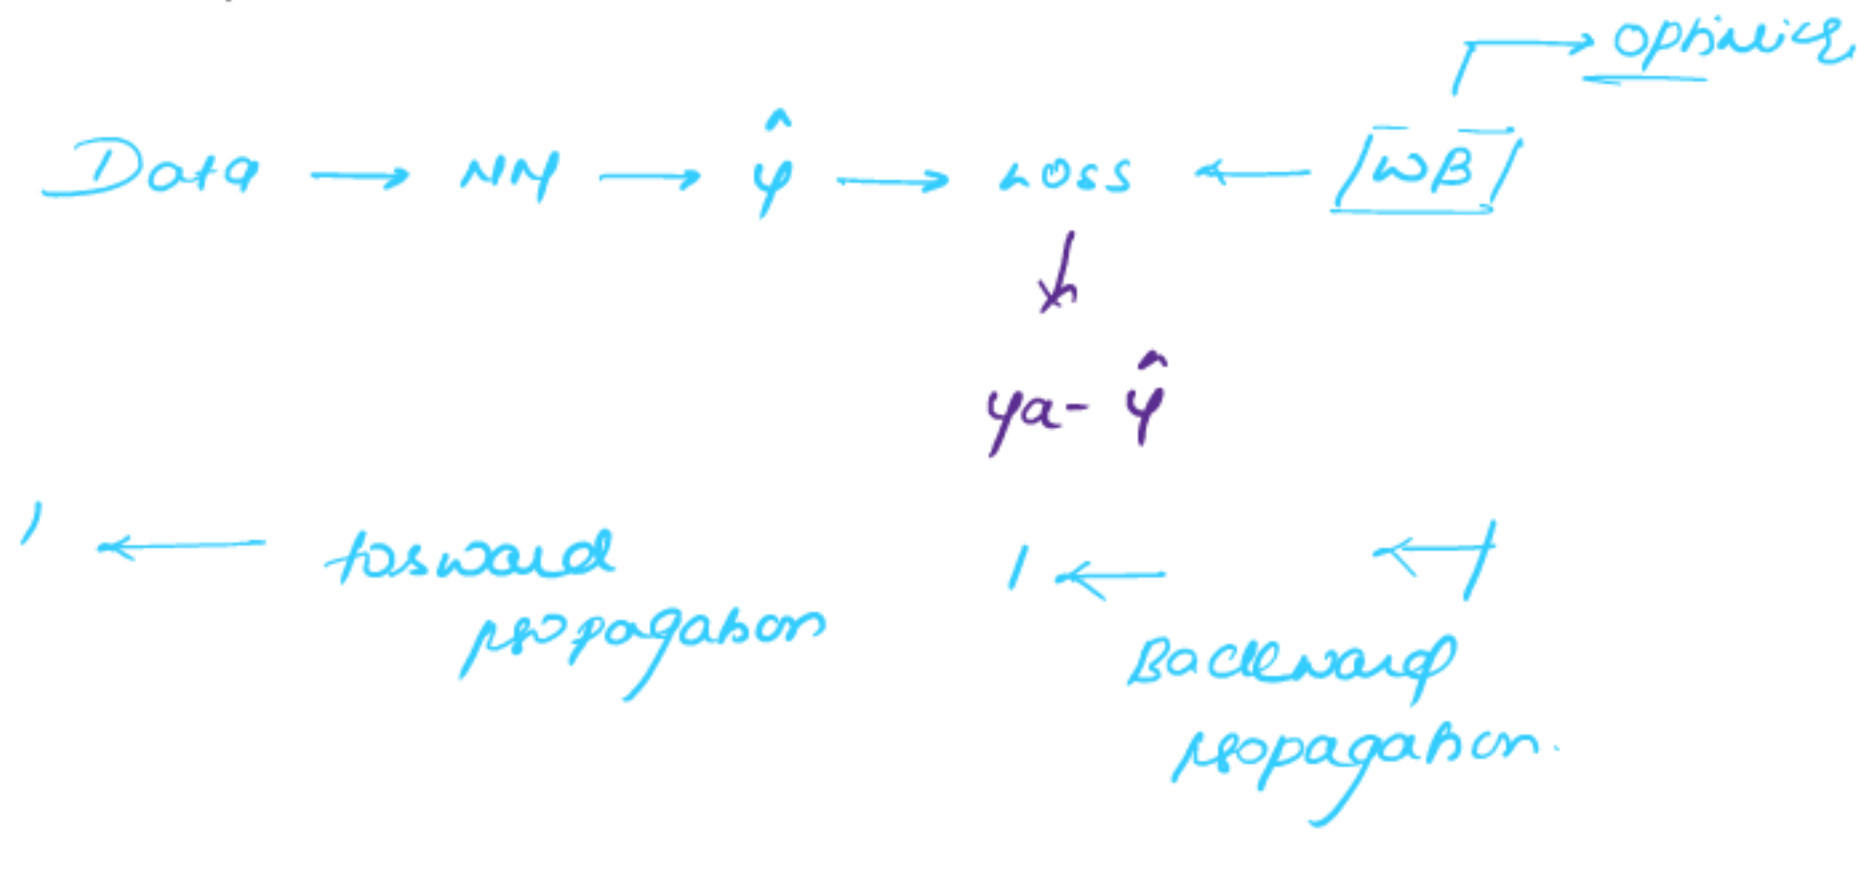 optimizer
Data → NN → ŷ → Loss ← WB
ya - ŷ
← forward
propagation
← ←
Backward
propagation.